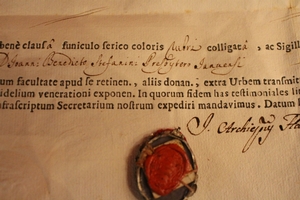 benè clausâ funiculo serico coloris rubri colligatâ, ac Sigill
D. Joanni Benedicto Stefanini Presbytero Januensi
um facultate apud se retinen., aliis donan., extra Urbem transmit
idelium venerationi exponen. In quorum fidem has testimoniales lit
frascriptum Secretarium nostrum expediri mandavimus. Datum
J. Archiep